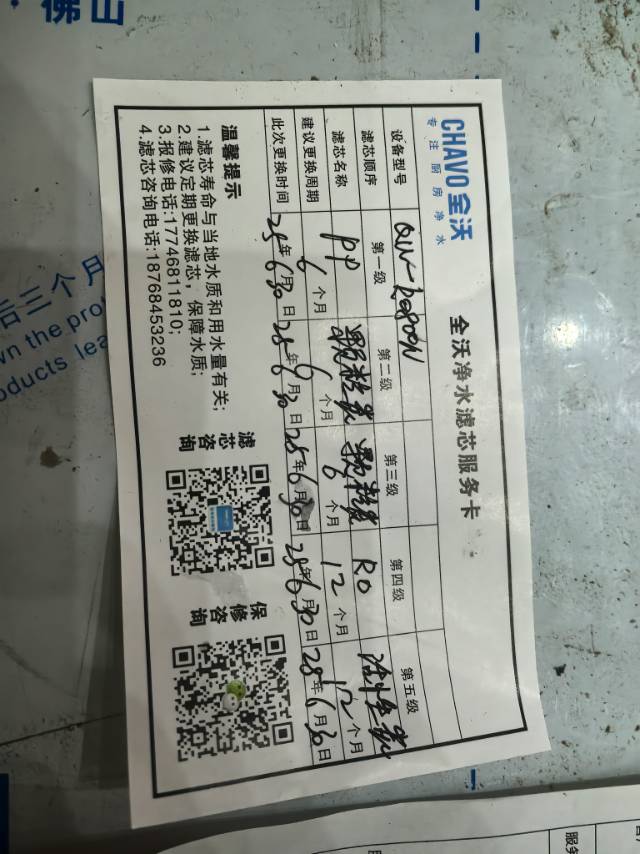 CHAVO全沃
专注厨房净水
全沃净水滤芯服务卡
设备型号
滤芯顺序 第一级 第二级 第三级 第四级 第五级
滤芯名称 PP 颗粒炭 颗粒炭 RO
建议更换周期 6个月 6个月 6个月 12个月 12个月
此次更换时间 25年6月30日 25年6月30日 25年6月30日 25年6月30日 25年6月30日
温馨提示
1.滤芯寿命与当地水质和用水量有关;
2.建议定期更换滤芯，保障水质;
3.报修电话:17746811810;
4.滤芯咨询电话:18768453236
滤芯咨询
保修咨询
佛山
后三个月
wn the prot
oducts lea
服务